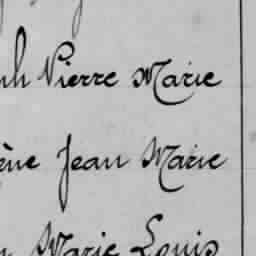 Pierre Marie
Jean Marie
Marie Louis